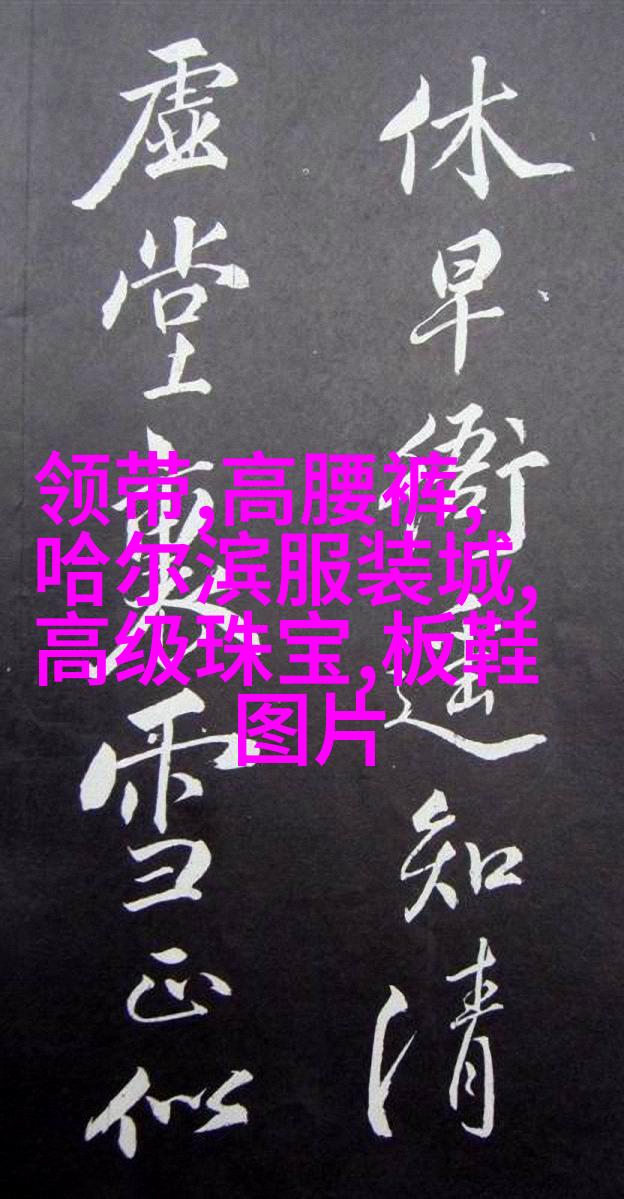 休早衙遥知清
虚堂雪正似
领带,高腰裤,
哈尔滨服装城,
高级珠宝,板鞋
图片